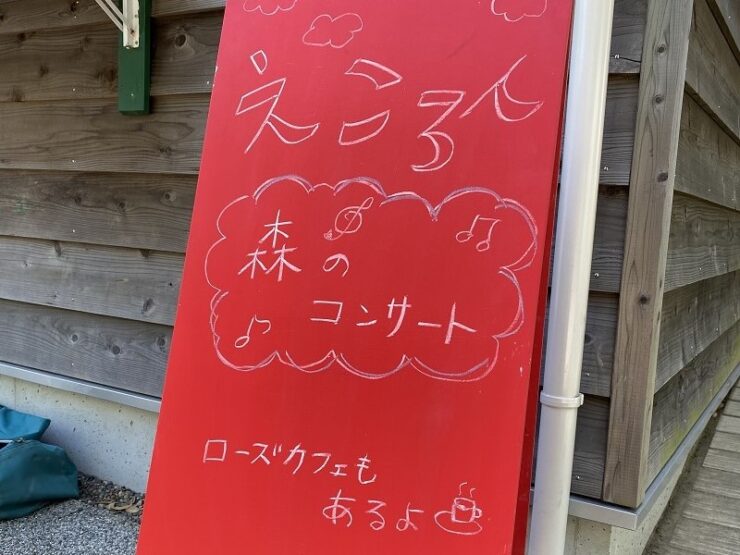 えころん
森の
コンサート
ローズカフェも
あるよ